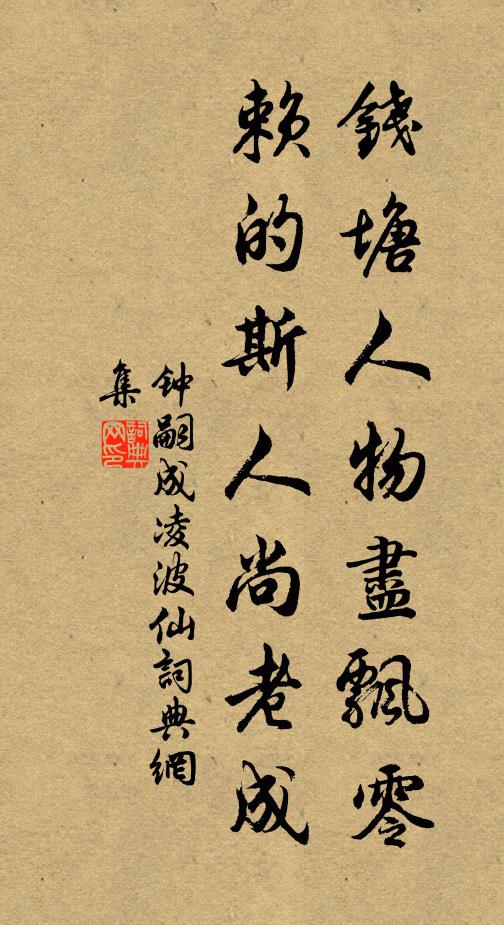 錢塘人物盡飄零
賴的斯人尚老成
钟嗣成凌波仙詞典網
集
詞典網印